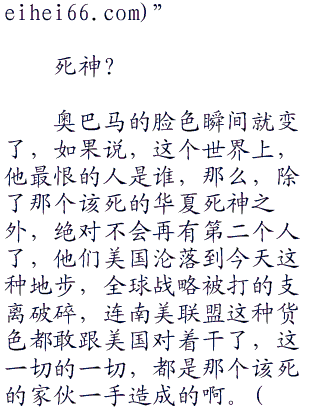 eihei66.com)”
死神？
奥巴马的脸色瞬间就变
了，如果说，这个世界上，
他最恨的人是谁，那么，除
了那个该死的华夏死神之
外，绝对不会再有第二个人
了，他们美国沦落到今天这
种地步，全球战略被打的支
离破碎，连南美联盟这种货
色都敢跟美国对着干了，这
一切的一切，都是那个该死
的家伙一手造成的啊。(